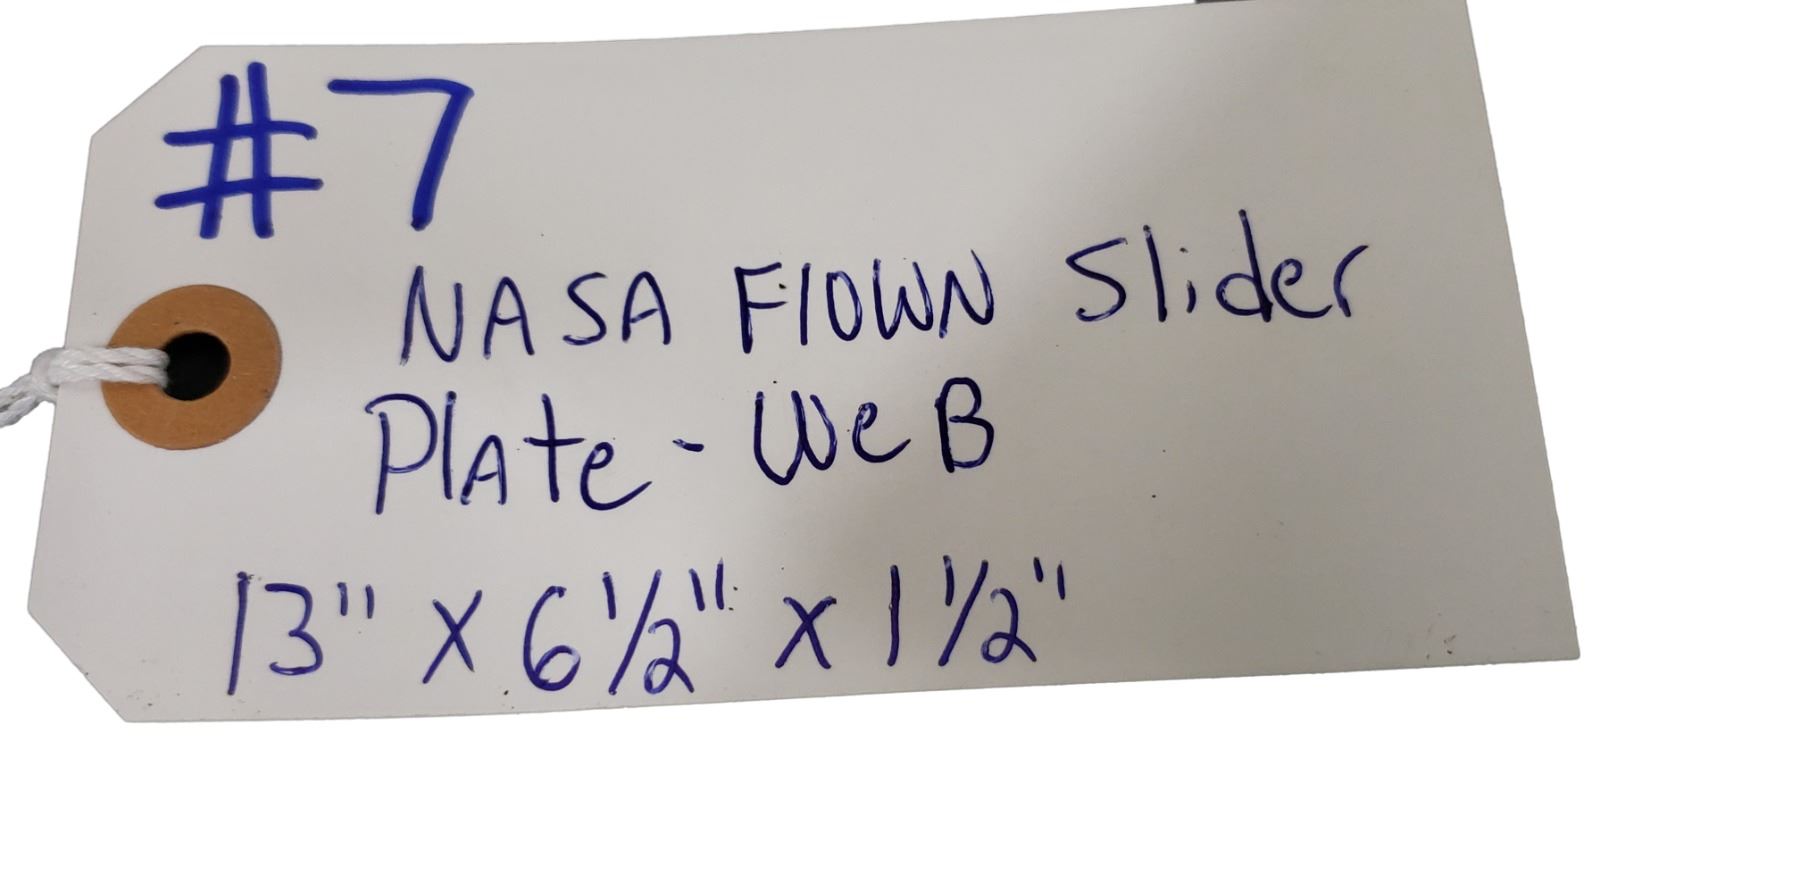 #7
NASA FlOWN Slider
PlAte - WeB
13" x 6 1/2" x 1 1/2"